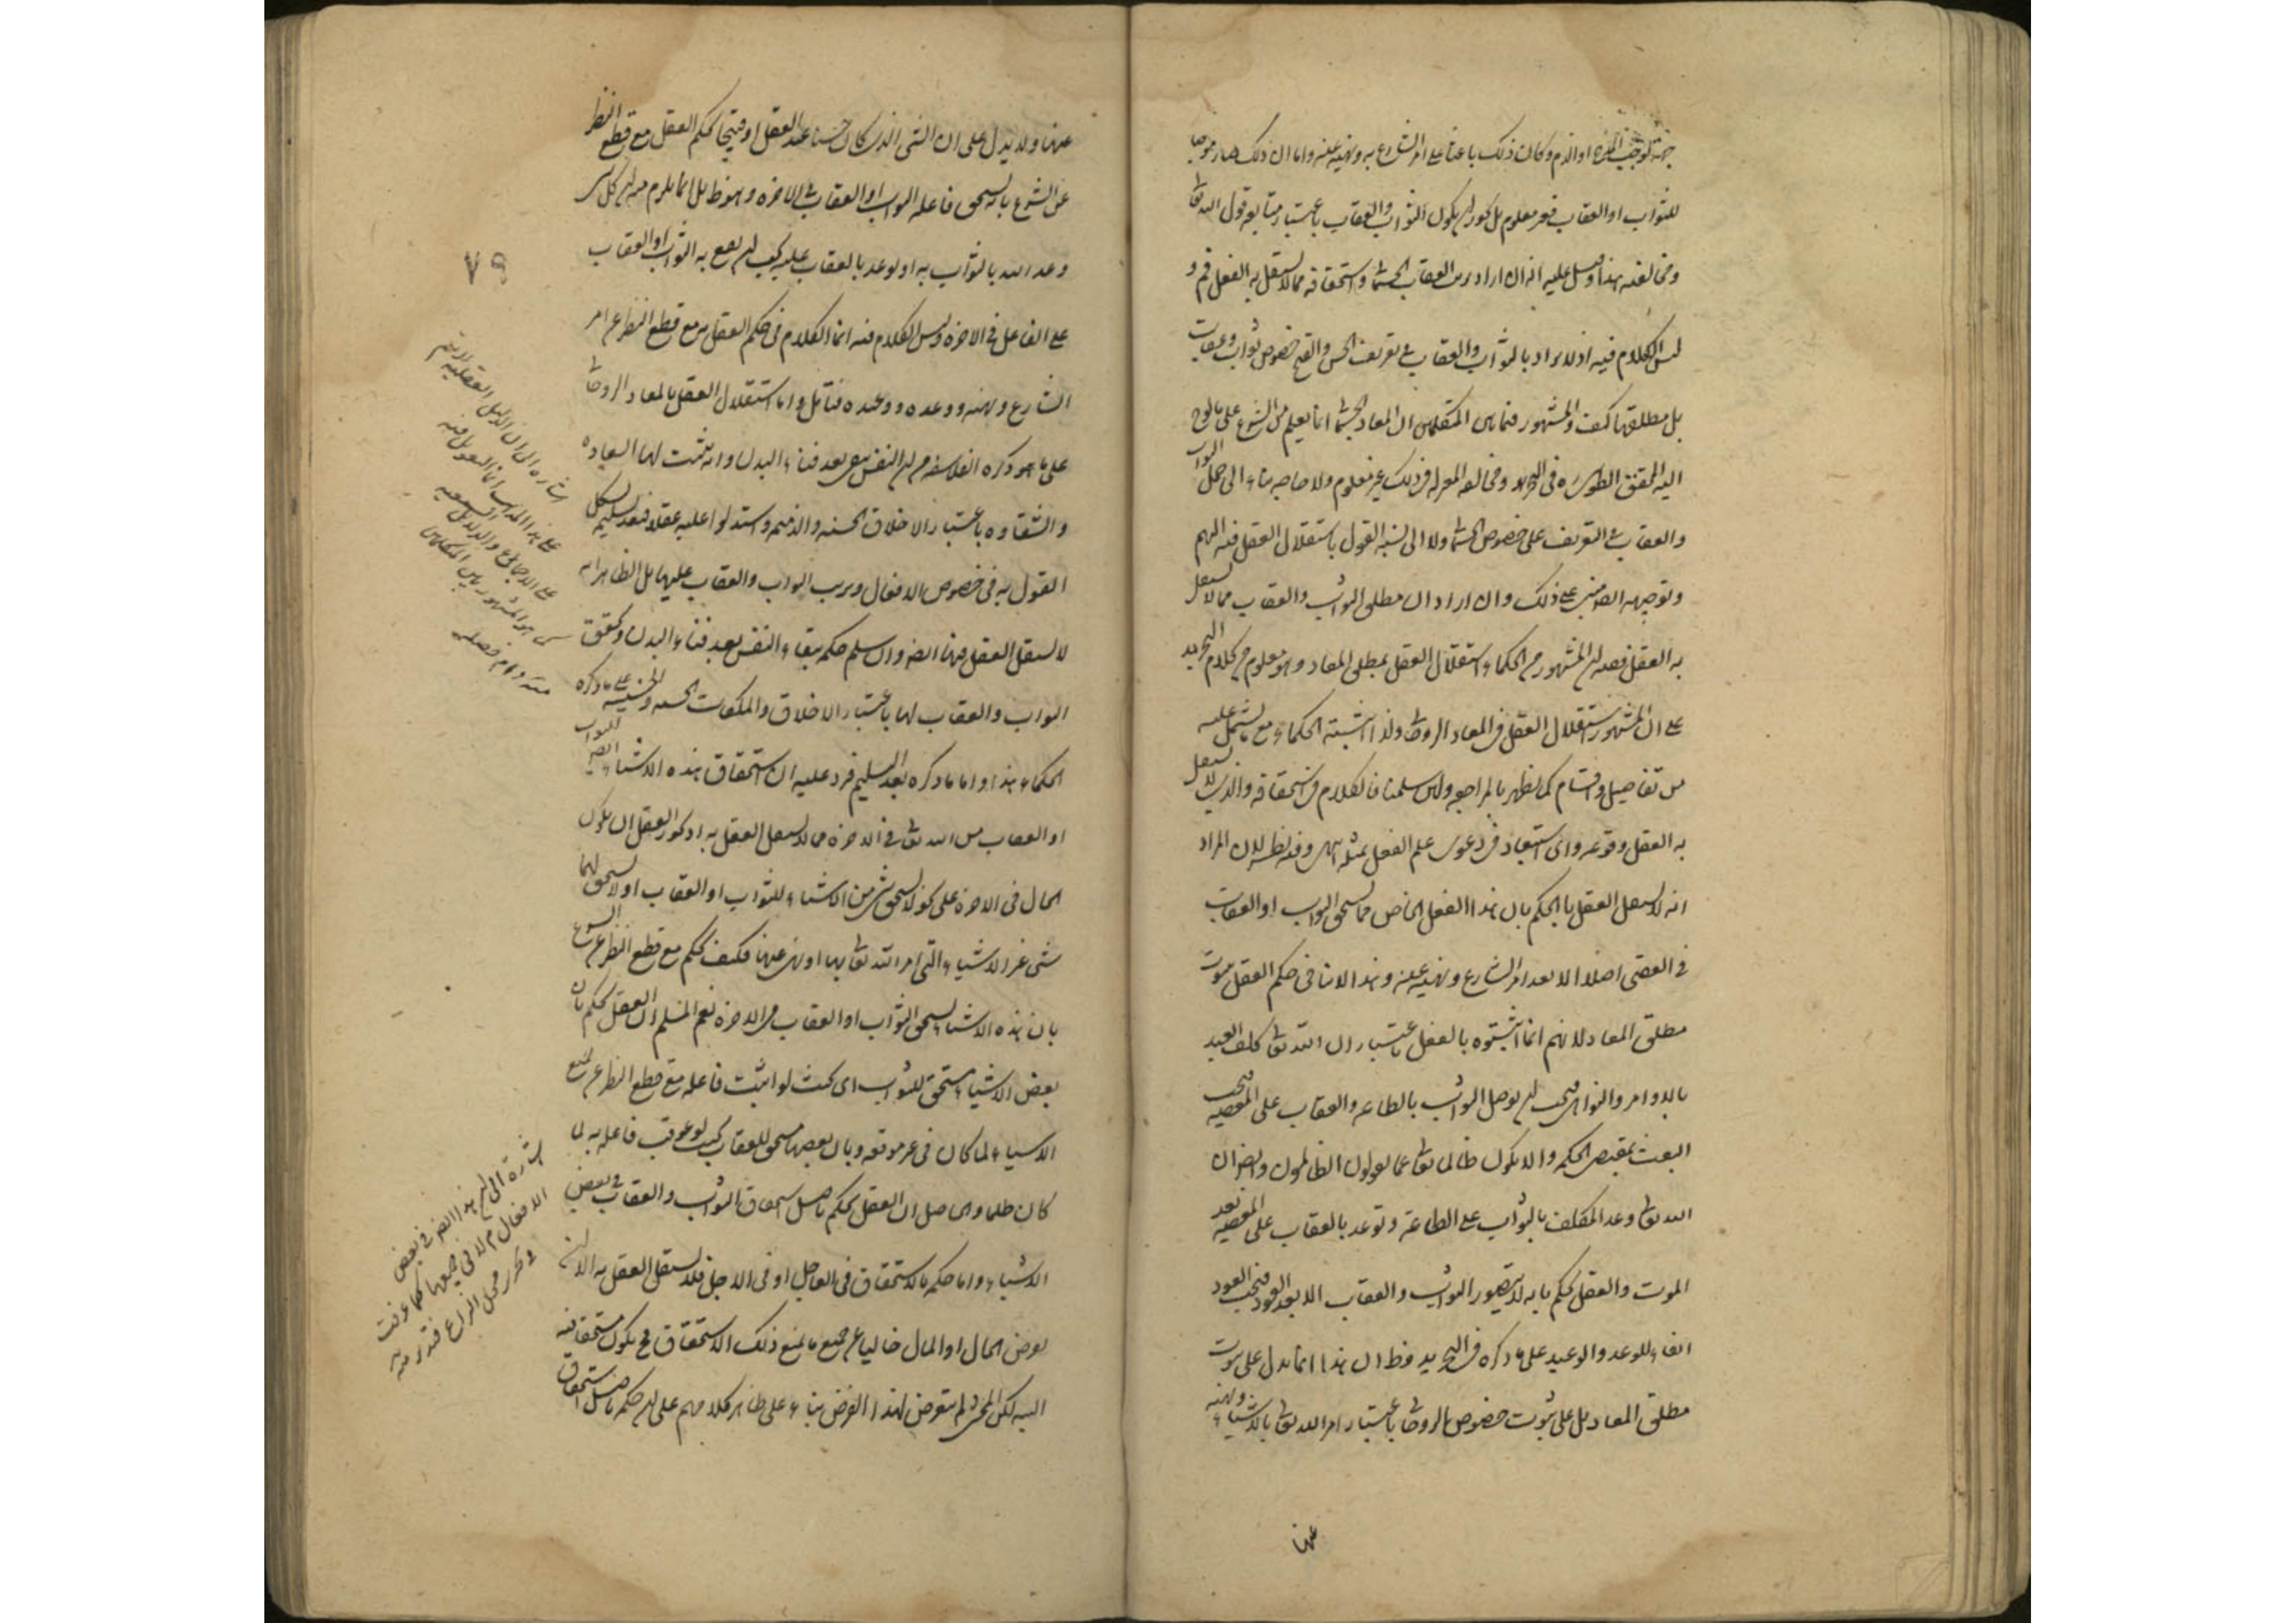 جهة توجب المدح او الذم وكان ذلك باعثا على امر الشارع به ونهيه عنه واما ان ذلك صار موجبا
للثواب او العقاب فغير معلوم بل يكون الثواب والعقاب باعتبار متابعة قول الله تعالى
ومخالفته هذا وقيل عليه انه ان اراد ان العقاب الجسمانى واستحقاقه مما لا يستقل به العقل فم و
ليس الكلام فيه اذ لا يراد بالثواب والعقاب فى تعريف الحسن والقبح خصوص ثواب وعقاب
بل مطلقها كيف والمشهور فيما بين المتكلمين ان المعاد الجسمانى انما يعلم من الشرع على ما لوح
اليه المحقق الطوسى ره فى التجريد ومخالفة المعتزلة فى ذلك غير معلوم ولا حاجة بنا الى حمل الثواب
والعقاب فى التعريف على خصوص الجسمانى ولا الى نسبة القول باستقلال العقل فيه اليهم
وتوجيهه ايضا مبنى على ذلك وان اراد ان مطلق الثواب والعقاب مما لا يستقل
به العقل ففيه ان المشهور من الحكماء استقلال العقل بمطلق المعاد وهو معلوم من كلام التجريد
على ان المشهور استقلال العقل فى المعاد الروحانى ولذا اثبته الحكماء مع ما يشتمل عليه
من تفاصيل واقسام كما يظهر بالمراجعة ولئن سلمنا فالكلام فى استحقاقه والذى لا يستقل
به العقل وقوعه واى استبعاد فى دعوى علم العقل بمثله انتهى وفيه نظر لان المراد
انه لا يستقل العقل بالحكم بان هذا الفعل الخاص مما يستحق الثواب او العقاب
فى العقبى اصلا الا بعد امر الشارع ونهيه عنه وهذا لا ينافى حكم العقل بثبوت
مطلق المعاد لانهم انما اثبتوه بالعقل باعتبار ان الله تعالى كلف العبد
بالاوامر والنواهى فيجب ان يوصل الثواب بالطاعة والعقاب على المعصية فيجب
البعث بمقتضى الحكمة والا لكان ظالما تعالى عما يقولون الظالمون وايضا ان
الله تعالى وعد المكلف بالثواب على الطاعة وتوعد بالعقاب على المعصية بعد
الموت والعقل يحكم بانه لا يتصور الثواب والعقاب الا بعد العود فيجب العود
ايفاء للوعد والوعيد على ما ذكره فى التجريد وظ ان هذا انما يدل على ثبوت
مطلق المعاد بل على ثبوت خصوص الروحانى باعتبار امر الله تعالى بالاشياء ونهيه
عنها
عنها ولا يدل على ان الشئ الذى كان حسنا عند العقل او قبيحا يحكم العقل مع قطع النظر
عن الشرع بانه يستحق فاعله الثواب او العقاب فى الاخرة وهو ظ بل انما يلزم منه ان كل شئ
وعد الله بالثواب به او توعد بالعقاب عليه يجب ان يقع به الثواب او العقاب
على الفاعل فى الاخرة وليس الكلام فيه انما الكلام فى حكم العقل به مع قطع النظر عن امر
الشارع ونهيه ووعده ووعيده فتامل واما استقلال العقل بالمعاد الروحانى
على ما هو ذكره الفلاسفة من ان النفس تبقى بعد فناء البدن وانه يثبت لها السعادة
والشقاوة باعتبار الاخلاق الحسنة والذميمة واستدلوا عليه عقلا فبعد تسليم يشكل
القول به فى خصوص الافعال وترتب الثواب والعقاب عليها بل الظاهر انه
لا يستقل العقل فيها ايضا وان سلم حكمه ببقاء النفس بعد فناء البدن وتحقق
الثواب والعقاب لها باعتبار الاخلاق والملكات الحسنة والخسيسة على ما ذكره
الحكماء هذا واما ما ذكره بعد التسليم فيرد عليه ان استحقاق هذه الاشياء ايضا للثواب
او العقاب من الله تعالى فى الاخرة مما لا يستقل العقل به اذ يجوز العقل ان يكون
الحال فى الاخرة على نحو لا يستحق شئ من الاشياء للثواب او العقاب او لا يستحق لهما
شئ غير الاشياء التى امر الله تعالى بها او نهى عنها فكيف يحكم مع قطع النظر عن الشرع
بان هذه الاشياء يستحق الثواب او العقاب فى الاخرة نعم المسلم ان العقل يحكم بان
بعض الاشياء مستحق للثواب اى بحيث لو اثيب فاعله مع قطع النظر عن جميع
الاشياء لما كان فى غير موقعه وبان بعضها مستحق للعقاب بحيث لو عوقب فاعله به لما
كان ظلما والحاصل ان العقل يحكم باصل استحقاق الثواب والعقاب فى بعض
الاشياء واما حكمه بالاستحقاق فى العاجل او فى الاجل فلا يستقل العقل به الا ان
يعرض الحال او المال خاليا عن جميع ما يمنع ذلك الاستحقاق فح يكون مستحقا فيه
البتة لكن المحشى لم يتعرض لهذا الفرض بناء على ظاهر كلامهم على ان حكمه باصل استحقاق
٧٩
اشارة الى ان الدليل العقلى لا يتم
على هذا المدعى انما المعول فيه
على الاجماع والدلائل السمعية
كما هو المشهور بين المتكلمين
منه دام فضله
اشارة الى ان هذا ايضا فى بعض
الافعال لا فى جميعها كما عرفت
فى تحرير محل النزاع فتدبر منه